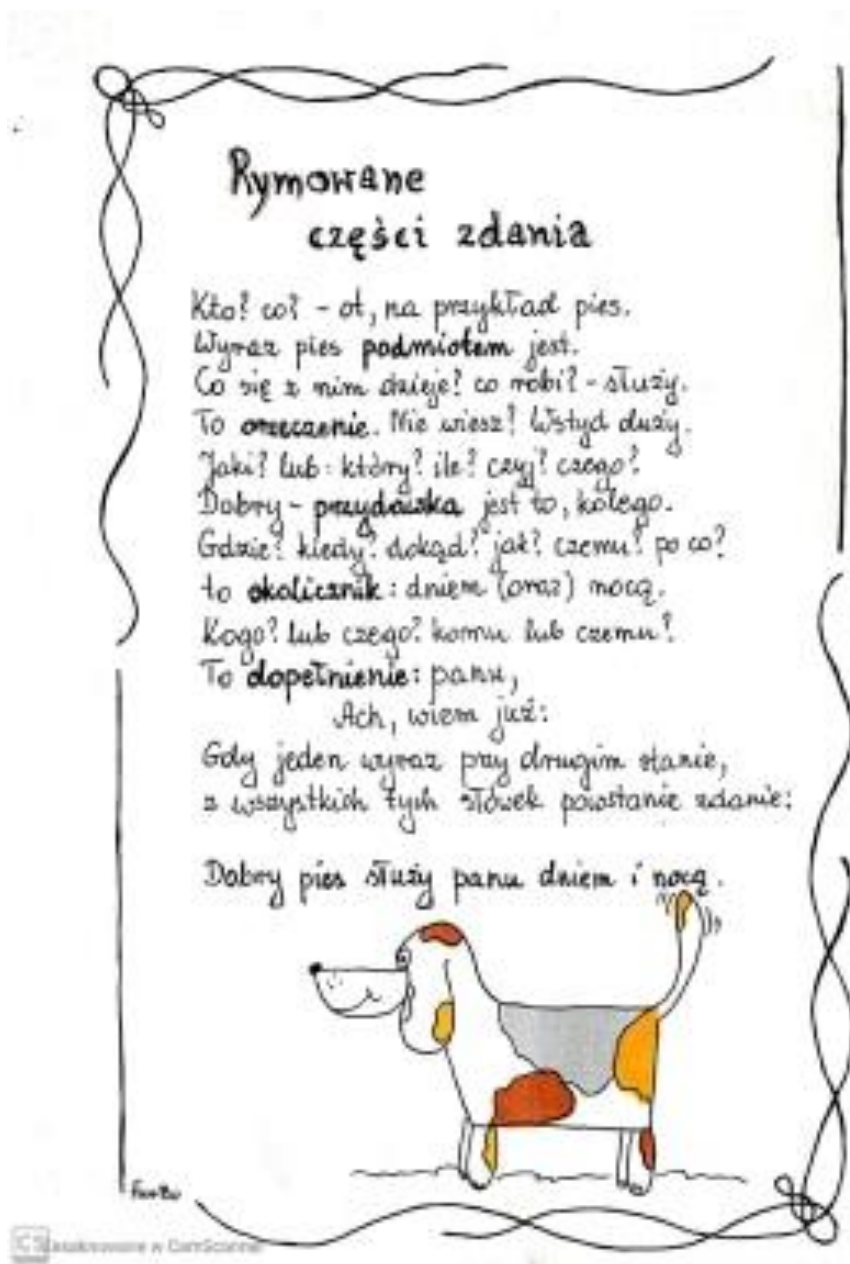 Rymowane
części zdania
Kto? co? - ot, na przykład pies.
Wyraz pies podmiotem jest.
Co się z nim dzieje? co robi? - służy.
To orzeczenie. Nie wiesz? Wstyd duży.
Jaki? lub: który? ile? czyj? czego?
Dobry - przydawka jest to, kolego.
Gdzie? kiedy? dokąd? jak? czemu? po co?
to okolicznik: dniem (oraz) nocą.
Kogo? lub czego? komu lub czemu?
To dopełnienie: panu,
Ach, wiem już:
Gdy jeden wyraz przy drugim stanie,
z wszystkich tych słówek powstanie zdanie:
Dobry pies służy panu dniem i nocą.
CS Zeskanowane w CamScanner